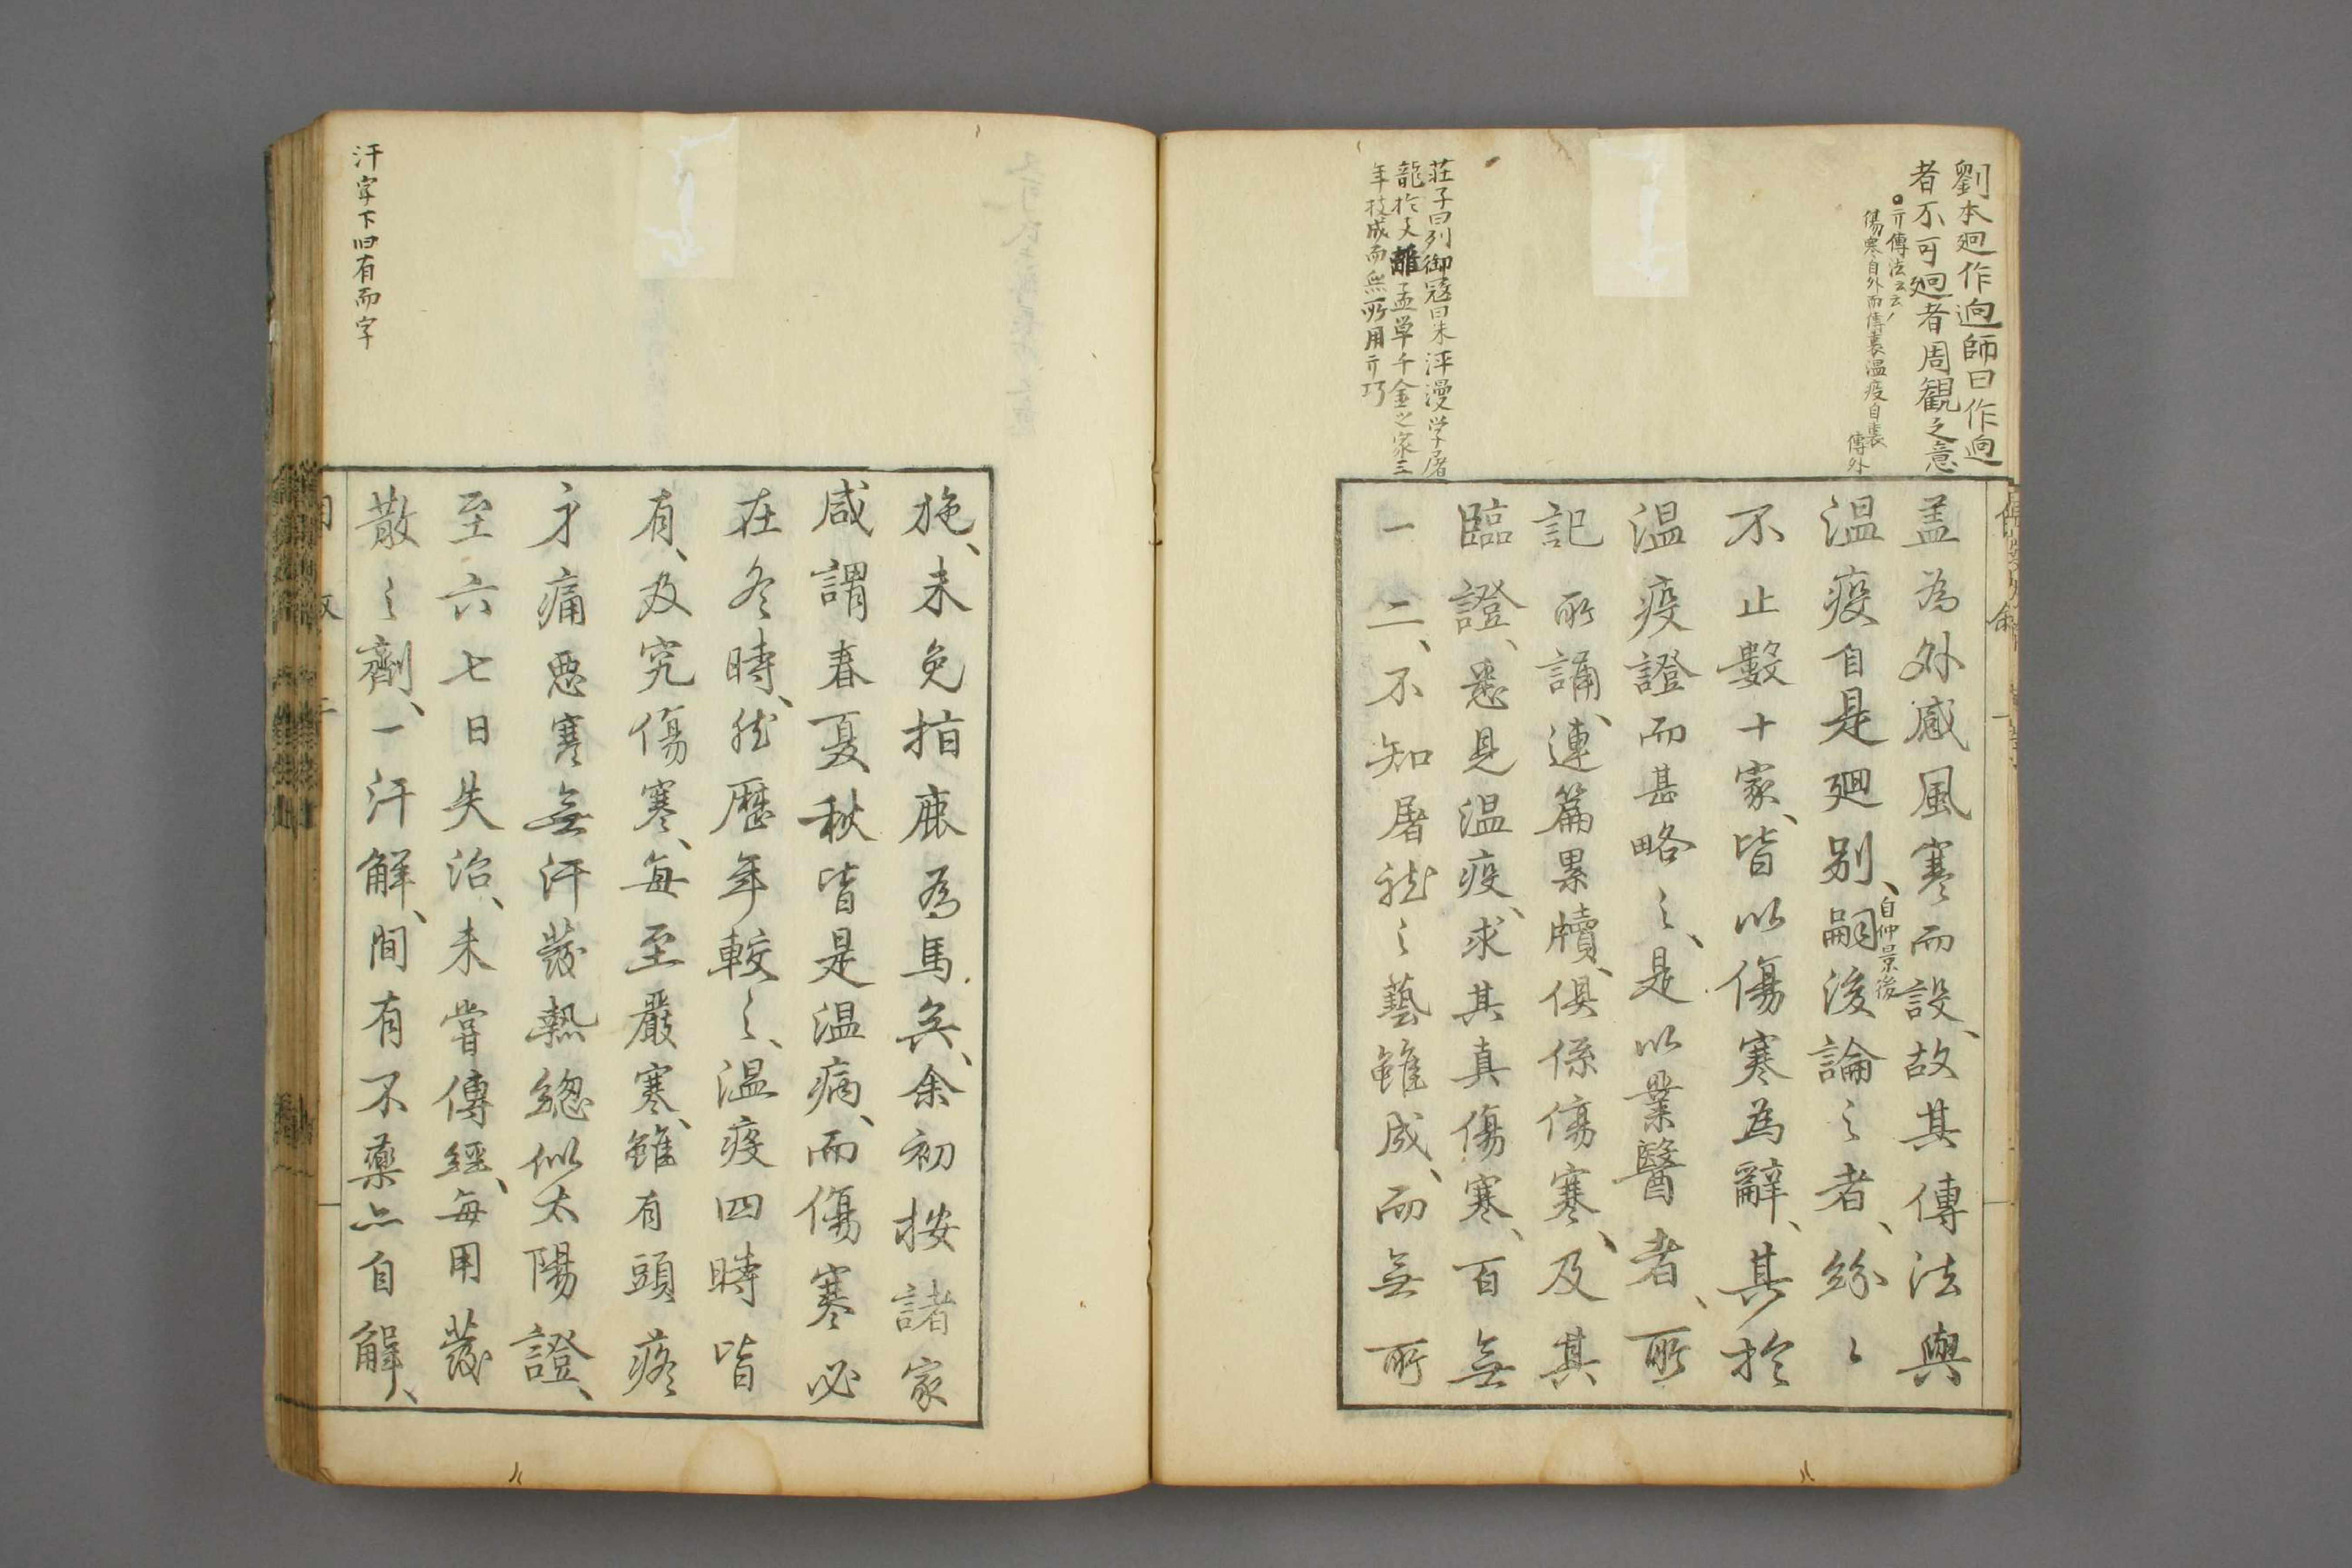 劉本廻作逈師曰作逈
者不可廻者周観之意
亓傳法云云
傷寒自外而傳裏温疫自裏
傳外
盖為外感風寒而設、故其傳法與
温疫自是廻别、嗣後論之者、紛〻
自仲景後
不止數十家、皆以傷寒為辭、其於
温疫證而甚略之、是以業醫者、所
記所誦、連篇累牘、俱係傷寒、及其
臨證、悉見温疫、求其真傷寒、百無
一二、不知屠龍之藝雖成、而無所
荘子曰列御冦曰朱泙漫学屠
龍於支離孟単千金之家三
年技成而無所用亓巧
施、未免指鹿為馬矣、余初按諸家
咸謂春夏、秋皆是温病、而傷寒必
在冬時、然歷年較之、温疫四時皆
有、及究傷寒、每至嚴寒、雖有頭疼
身痛悪寒無汗發熱緫似太陽證、
至六七日失治、未嘗傳經、每用發
散之劑、一汗解、間有不藥亦自解、
汗字下旧有而字